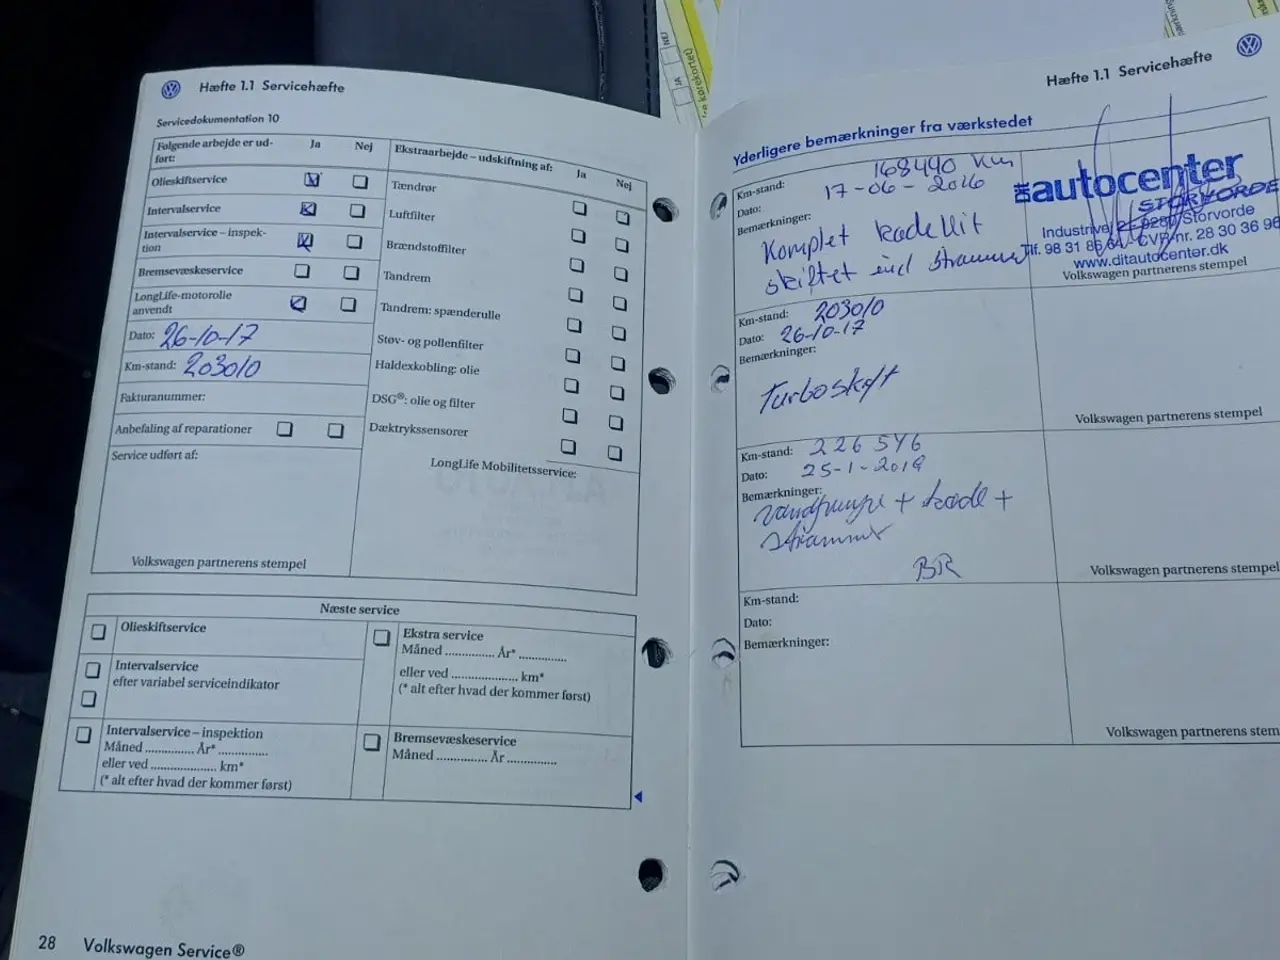 Hæfte 1.1 Servicehæfte
Servicedokumentation 10
Følgende arbejde er ud-
ført:
Ja
Nej
Olieskiftservice
Intervalservice
Intervalservice – inspek-
tion
Bremsevæskeservice
LongLife-motorolie
anvendt
Dato: 26-10-17
Km-stand: 203010
Fakturanummer:
Anbefaling af reparationer
Service udført af:
Volkswagen partnerens stempel
Ekstraarbejde – udskiftning af:
Ja
Nej
Tændrør
Luftfilter
Brændstoffilter
Tandrem
Tandrem: spænderulle
Støv- og pollenfilter
Haldexkobling: olie
DSG®: olie og filter
Dæktrykssensorer
LongLife Mobilitetsservice:
Næste service
Olieskiftservice
Intervalservice
efter variabel serviceindikator
Intervalservice – inspektion
Måned .............. År* ..............
eller ved ................... km*
(* alt efter hvad der kommer først)
Ekstra service
Måned .............. År* ..............
eller ved ................... km*
(* alt efter hvad der kommer først)
Bremsevæskeservice
Måned .............. År ..............
28 Volkswagen Service®
Hæfte 1.1 Servicehæfte
Yderligere bemærkninger fra værkstedet
Km-stand: 168490 Km
Dato: 17-06-2016
Bemærkninger:
Komplet
skiftet
autocenter
STORVORDE
Storvorde
CVR-nr. 28 30 36 96
www.ditautocenter.dk
Volkswagen partnerens stempel
Km-stand: 203010
Dato: 26-10-17
Bemærkninger:
Turboskift
Volkswagen partnerens stempel
Km-stand: 226546
Dato: 25-1-2019
Bemærkninger:
vandpumpe + +
strammer
BR
Volkswagen partnerens stempel
Km-stand:
Dato:
Bemærkninger:
Volkswagen partnerens stem